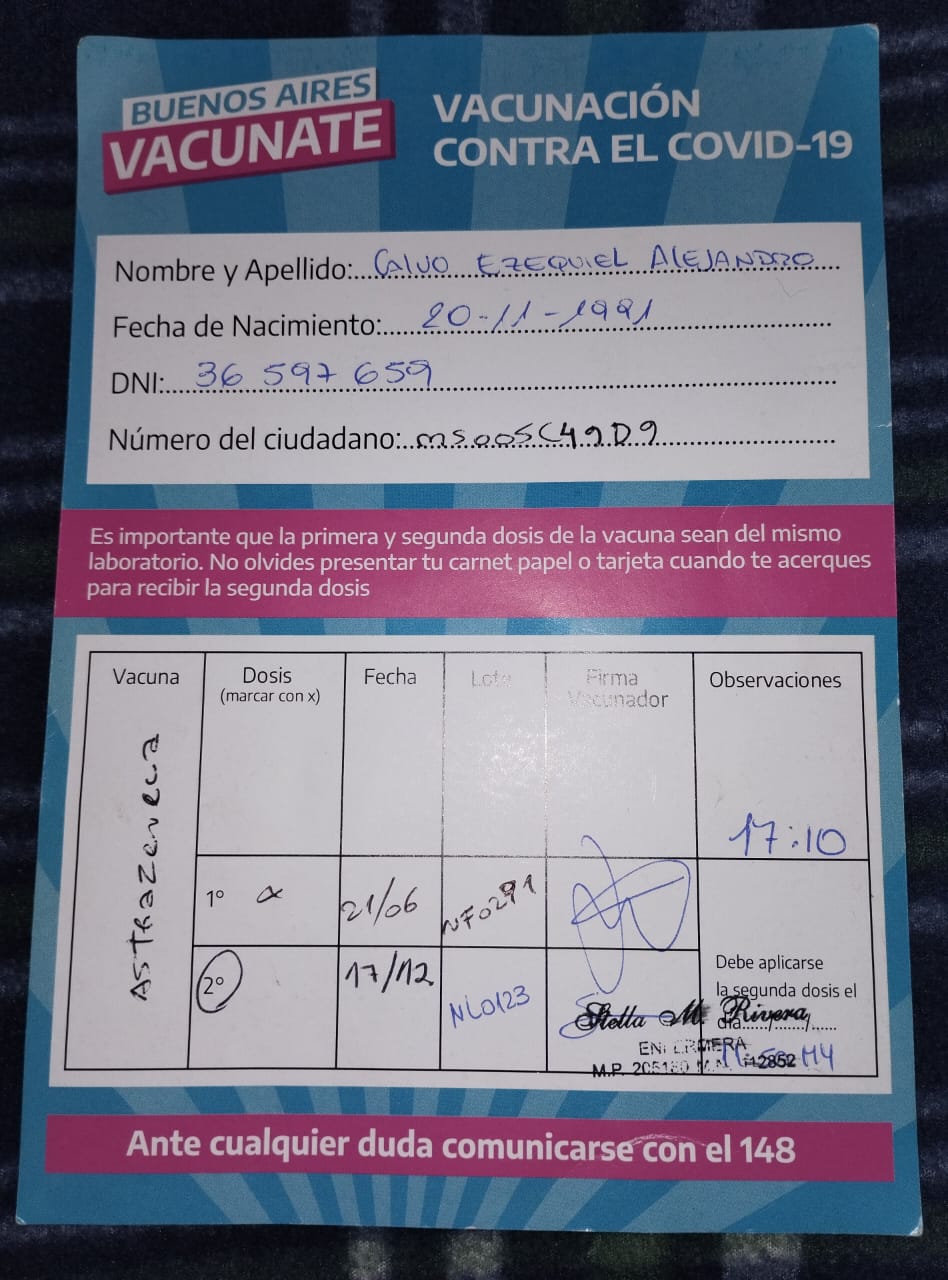 BUENOS AIRES
VACUNATE
VACUNACIÓN
CONTRA EL COVID-19
Nombre y Apellido: CALVO EZEQUIEL ALEJANDRO
Fecha de Nacimiento: 20-11-1991
DNI: 36 597 659
Número del ciudadano: ms005C49D9
Es importante que la primera y segunda dosis de la vacuna sean del mismo
laboratorio. No olvides presentar tu carnet papel o tarjeta cuando te acerques
para recibir la segunda dosis
Vacuna Dosis Fecha Lote Firma Observaciones
(marcar con x) Vacunador
ASTRAZENECA
17:10
1º x 21/06 NF0291
2º 17/12 NL0123
Debe aplicarse
la segunda dosis el
día....../......./......
Stella M. Rivera
ENFERMERA
M.P. 205180 M.N. 12852
Ante cualquier duda comunicarse con el 148